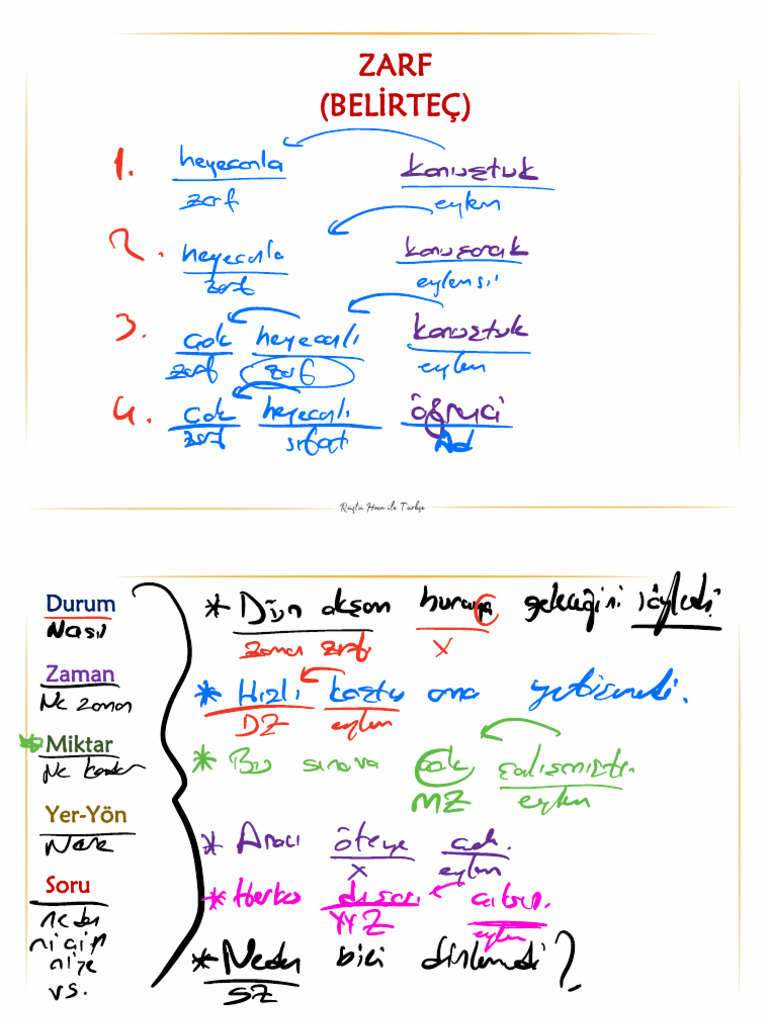 ZARF
(BELİRTEÇ)
1. heyecanla konuştuk
zarf eylem
2. heyecanla konuşarak
zarf eylemsi
3. çok heyecanlı konuştuk
zarf zarf eylem
4. çok heyecanlı öğrenci
zarf sıfat Ad
Rüştü Hoca ile Türkçe
Durum
Nasıl
Zaman
Ne zaman
Miktar
Ne kadar
Yer-Yön
Nere
Soru
neden
niçin
niye
vs.
* Dün akşam buraya geleceğini söyledi
zaman zarfı X
* Hızlı koştu ama yetişemedi.
DZ eylem
* Bu sınava çok çalışmıştı.
MZ eylem
* Aracı öteye çek.
X eylem
* Herkes dışarı çıksın.
YYZ eylem
* Neden bizi dinlemedi?
SZ